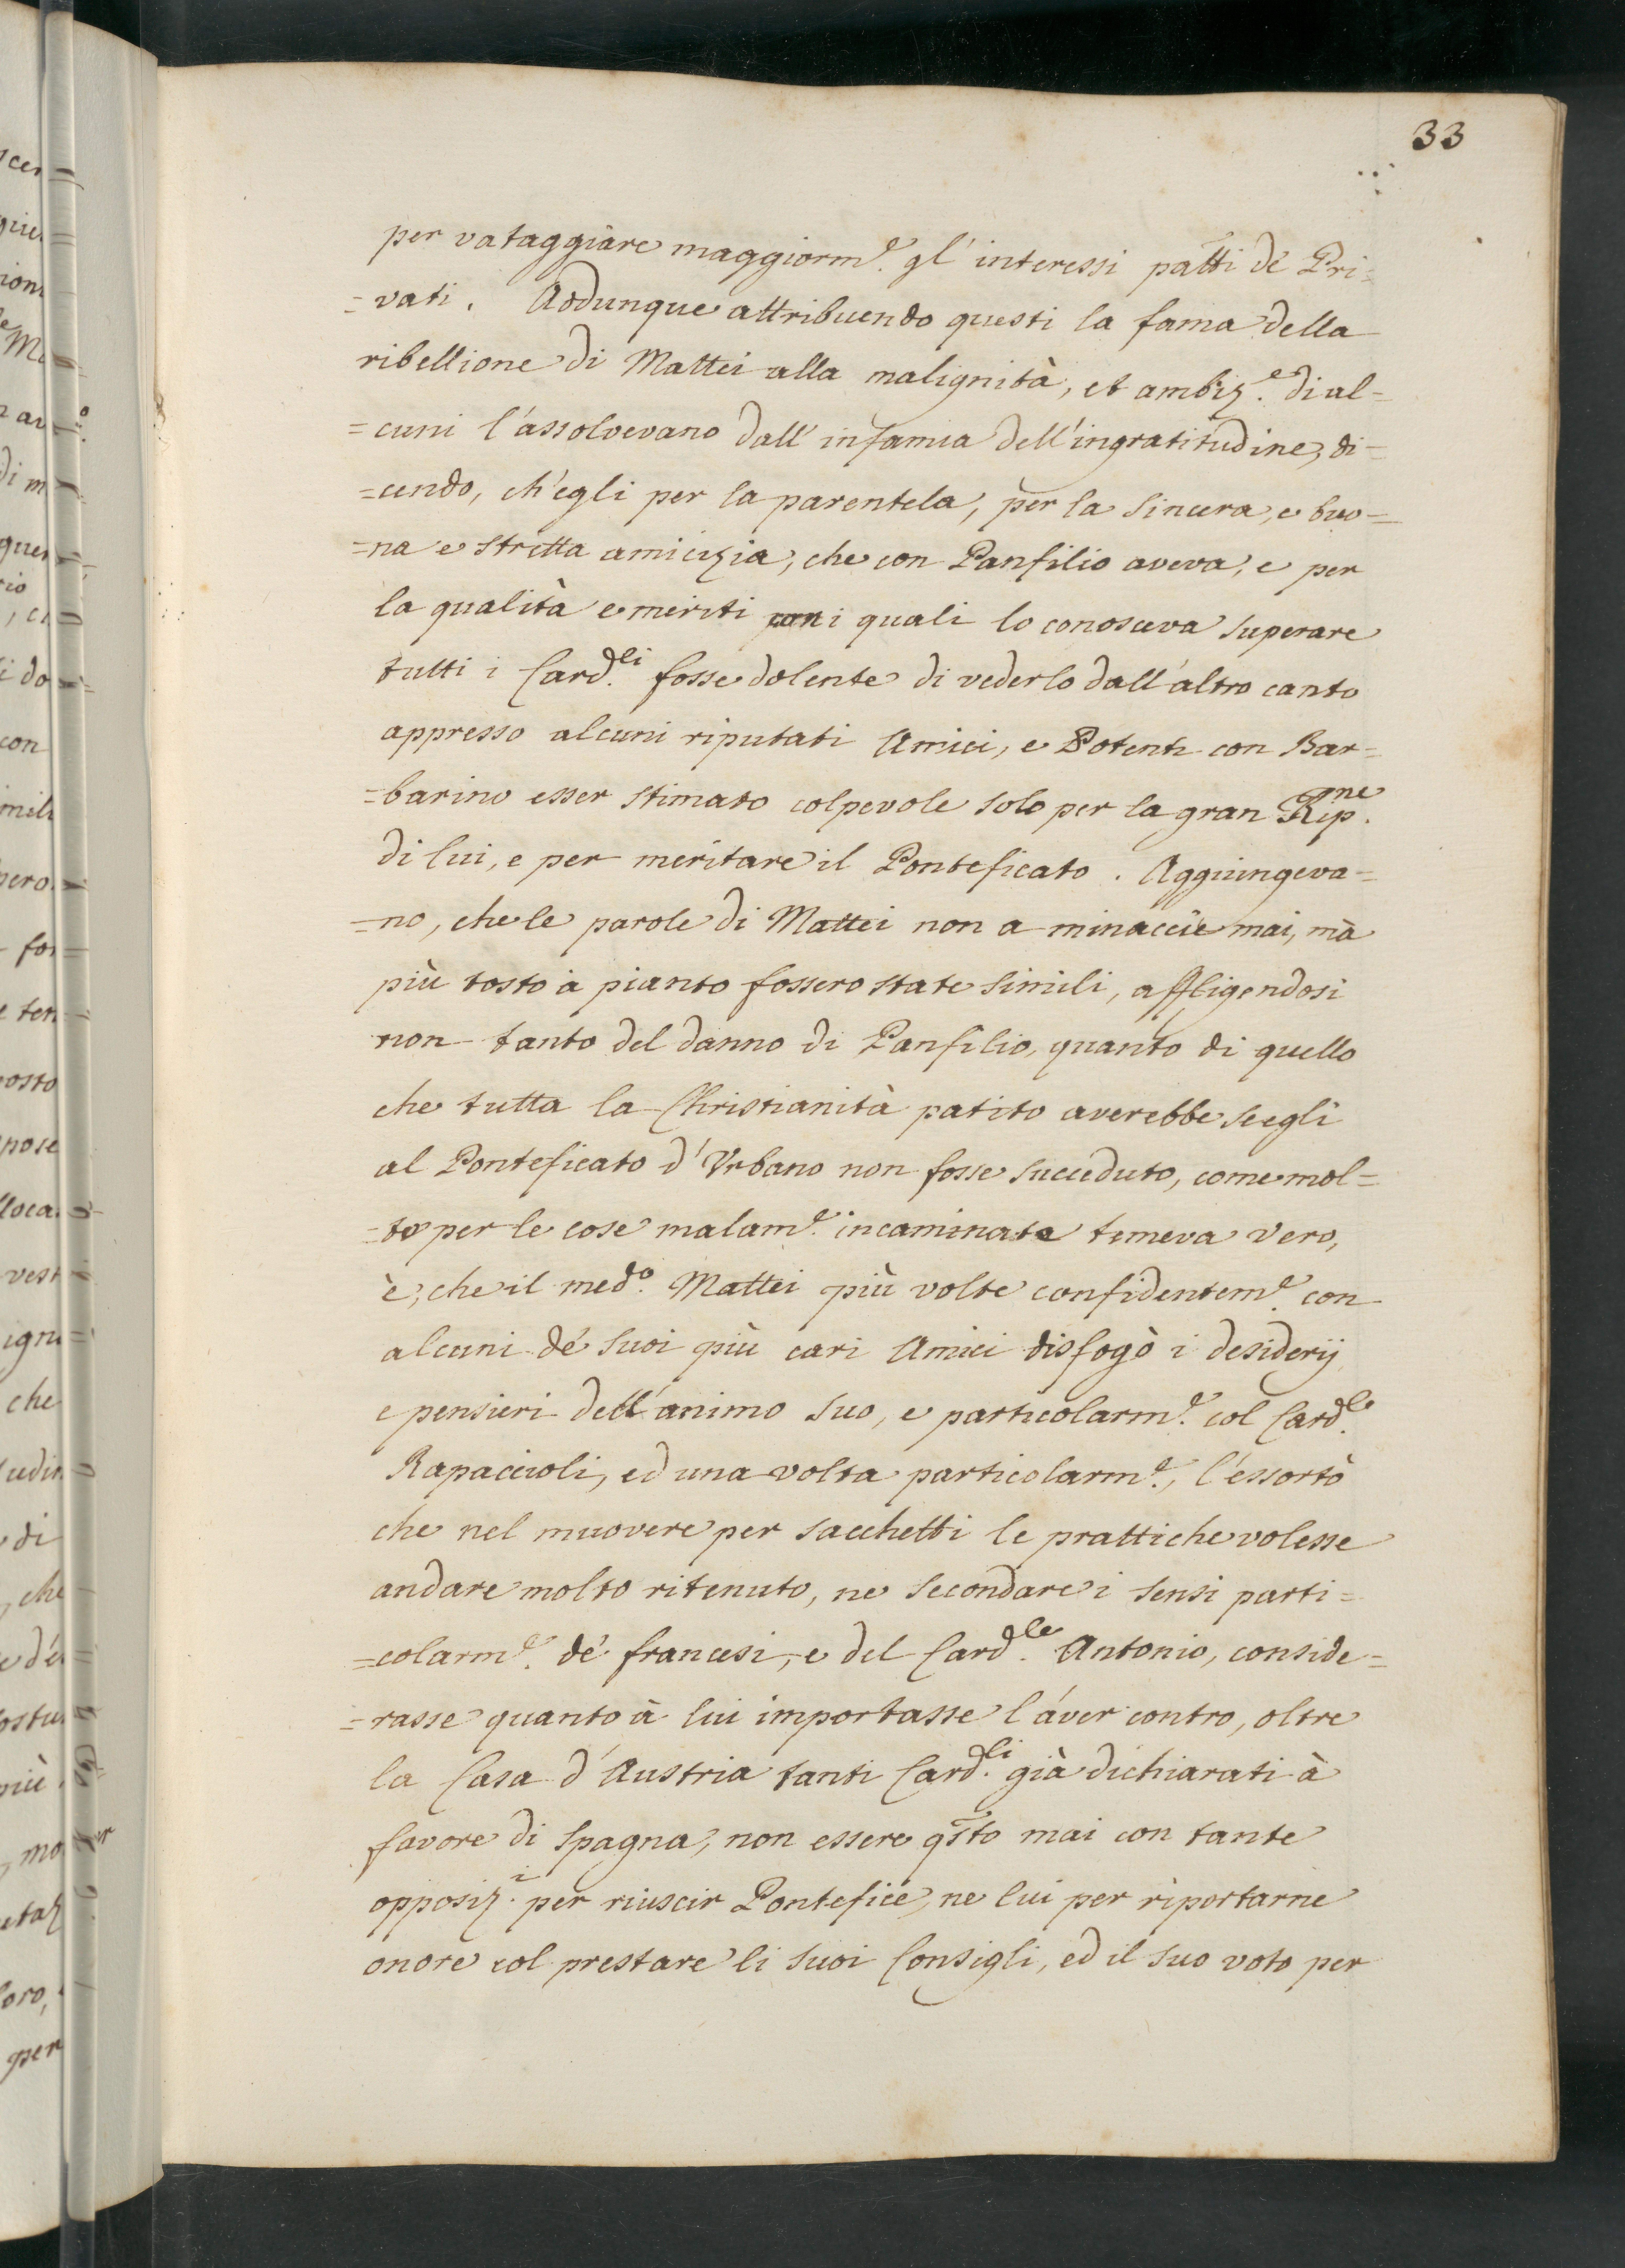 33
per vataggiare maggiorm.e gl' interessi patti de Pri=
=vati. Addunque attribuendo questi la fama della
ribellione di Mattei alla malignità, et ambiz.e di al=
=cuni l'assolvevano dall' infamia dell' ingratitudine, di=
=cendo, ch'egli per la parentela, per la sincera, e buo=
=na e stretta amicizia, che con Panfilio aveva, e per
la qualità e meriti con i quali lo conosceva superare
tutti i Card.li fosse dolente di vederlo dall'altro canto
appresso alcuni riputati Amici, e Potenti con Bar=
=barino esser stimato colpevole solo per la gran Rip.ne
di lui, e per meritare il Ponteficato. Aggiungeva=
=no, che le parole di Mattei non a minaccie mai, mà
più tosto à pianto fossero state simili, affligendosi
non tanto del danno di Panfilio, quanto di quello
che tutta la Christianità patito averebbe se egli
al Ponteficato d'Urbano non fosse succeduto, come mol=
=to per le cose malam.e incaminate temeva Vero,
è, che il med.o Mattei più volte confidentem.e con
alcuni de' suoi più cari Amici disfogò i desiderij
e pensieri dell'animo suo, e particolarm.e col Card.le
Rapaccioli, ed una volta particolarm.e, l'essortò
che nel muovere per Sacchetti le prattiche volesse
andare molto ritenuto, ne secondare i sensi parti=
=colarm.e de' francesi, e del Card.le Antonio, conside=
=rasse quanto à lui importasse l'aver contro, oltre
la Casa d'Austria tanti Card.li già dichiarati à
favore di Spagna, non essere qsto mai con tante
opposiz.i per riuscir Pontefice, ne lui per riportarne
onore col prestare li suoi Consigli, ed il suo voto per